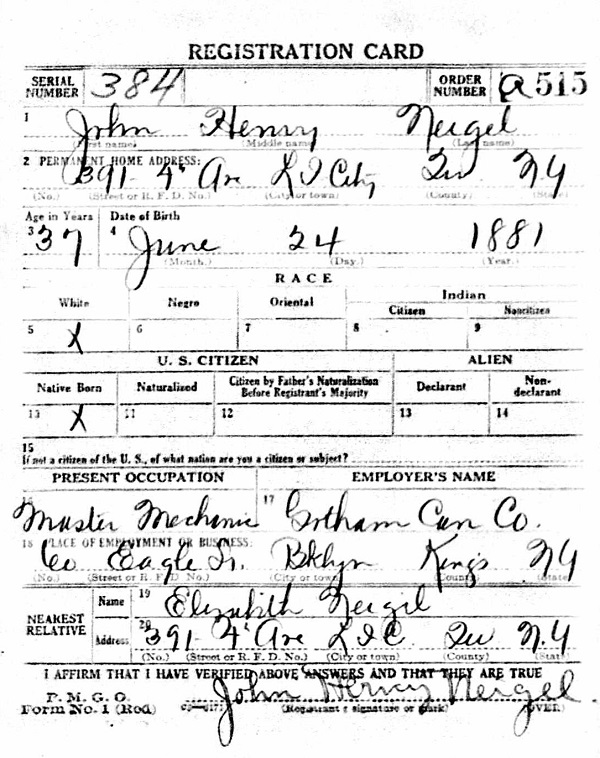 REGISTRATION CARD
SERIAL NUMBER 384 ORDER NUMBER a 515
1 John Henry Neigel
(First name) (Middle name) (Last name)
2 PERMANENT HOME ADDRESS:
391 4" Ave L I City Qu N Y
(No.) (Street or R. F. D. No.) (City or town) (County) (State)
Age in Years Date of Birth
3 37 4 June 24 1881
(Month.) (Day.) (Year.)
RACE
White Negro Oriental Indian
Citizen Noncitizen
5 X 6 7 8 9
U. S. CITIZEN ALIEN
Native Born Naturalized Citizen by Father's Naturalization Before Registrant's Majority Declarant Non-declarant
10 X 11 12 13 14
15
If not a citizen of the U. S., of what nation are you a citizen or subject?
PRESENT OCCUPATION EMPLOYER'S NAME
Master Mechanic 17 Gotham Can Co.
18 PLACE OF EMPLOYMENT OR BUSINESS:
Eagle St. Bklyn Kings N Y
(No.) (Street or R. F. D. No.) (City or town) (County) (State)
NEAREST RELATIVE Name 19 Elizabeth Neigel
Address 20 391 4" Ave L I C Qu N.Y
(No.) (Street or R. F. D. No.) (City or town) (County) (State)
I AFFIRM THAT I HAVE VERIFIED ABOVE ANSWERS AND THAT THEY ARE TRUE
P. M. G. O.
Form No. 1 (Red) John Henry Neigel
(Registrant's signature or mark) (OVER)